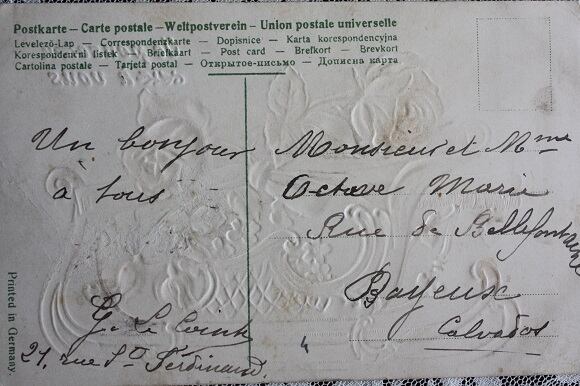 Postkarte — Carte postale — Weltpostverein — Union postale universelle
Levelező-Lap — Correspondenzkarte — Dopisnice — Karta korespondencyjna
Korespondenční lístek — Briefkaart — Post card — Brefkort — Brevkort
Cartolina postale — Tarjeta postal — Открытое-письмо — Дописна карта
Un bonjour
à tous
G. Le Cointe
21, rue St Ferdinand.
Monsieur et Mme
Octave Marie
Rue de Bellefontaine
Bayeux
Calvados
4
Printed in Germany.